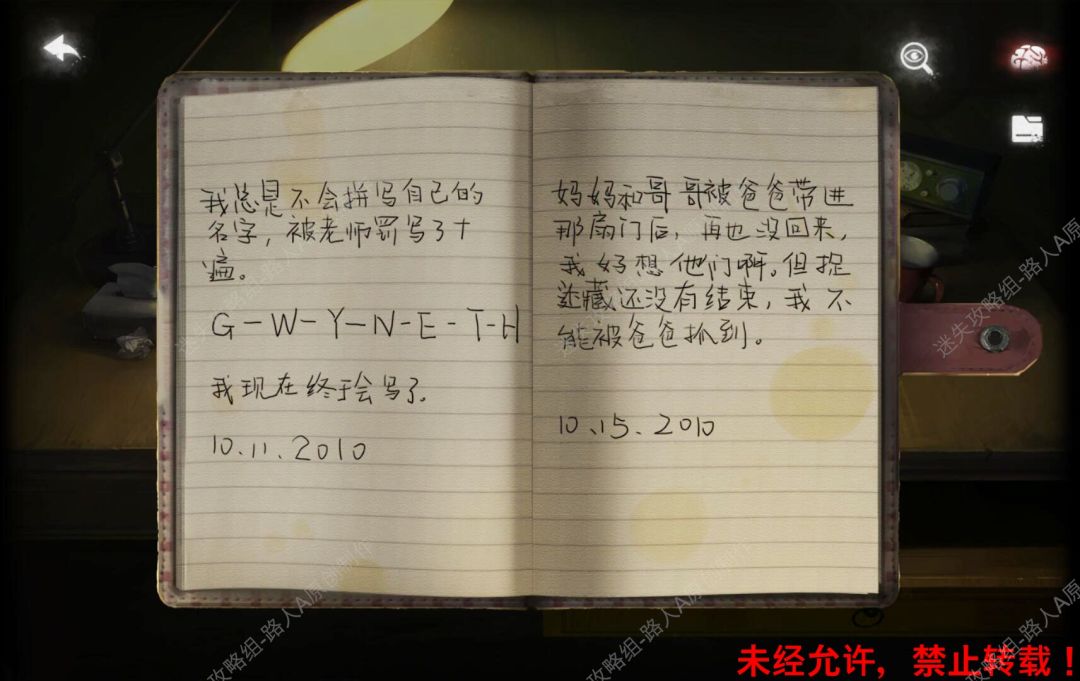 我总是不会拼写自己的
名字，被老师罚写了十
遍。
G-W-Y-N-E-T-H
我现在终于会写了。
10.11.2010
妈妈和哥哥被爸爸带进
那扇门后，再也没回来，
我好想他们啊。但捉
迷藏还没有结束，我不
能被爸爸抓到。
10.15.2010
迷失攻略组-路人A原
迷失攻略组-路人A原创制作
攻略组-路人A原创制作
攻略组-路人A原
未经允许，禁止转载！